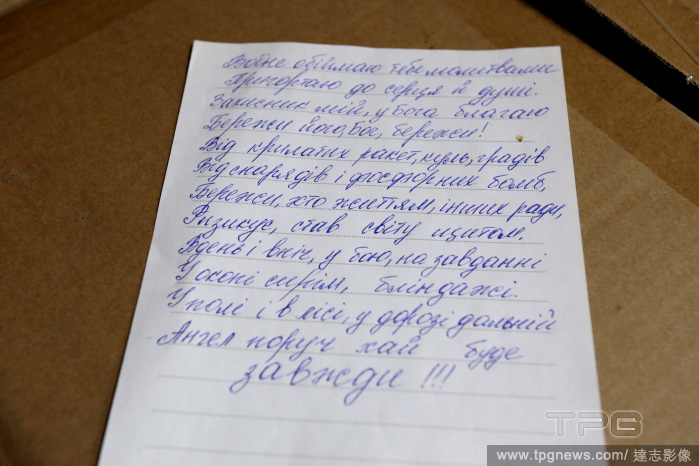 Воїне обіймаю тебе молитвами
Пригортаю до серця й душі.
Захисник мій, у бога благаю
Бережи його, бос, бережи!
Від крилатих ракет, куль, градів
Від снарядів і фосфорних бомб,
Бережи, хто життям, інших ради,
Ризикує, став світу щитом.
Вдень і вніч, у бою, на завданні
У окопі сирім, бліндажі.
У полі і в лісі, у дорозі дальній
Ангел поруч хай буде
завжди !!!
TPG
www.tpgnews.com/ 達志影像